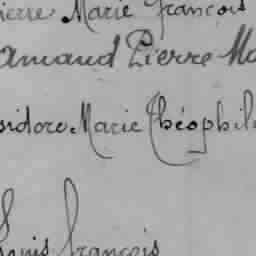 Pierre Marie François
Amand Pierre Ma
Isidore Marie Théophile
Louis François